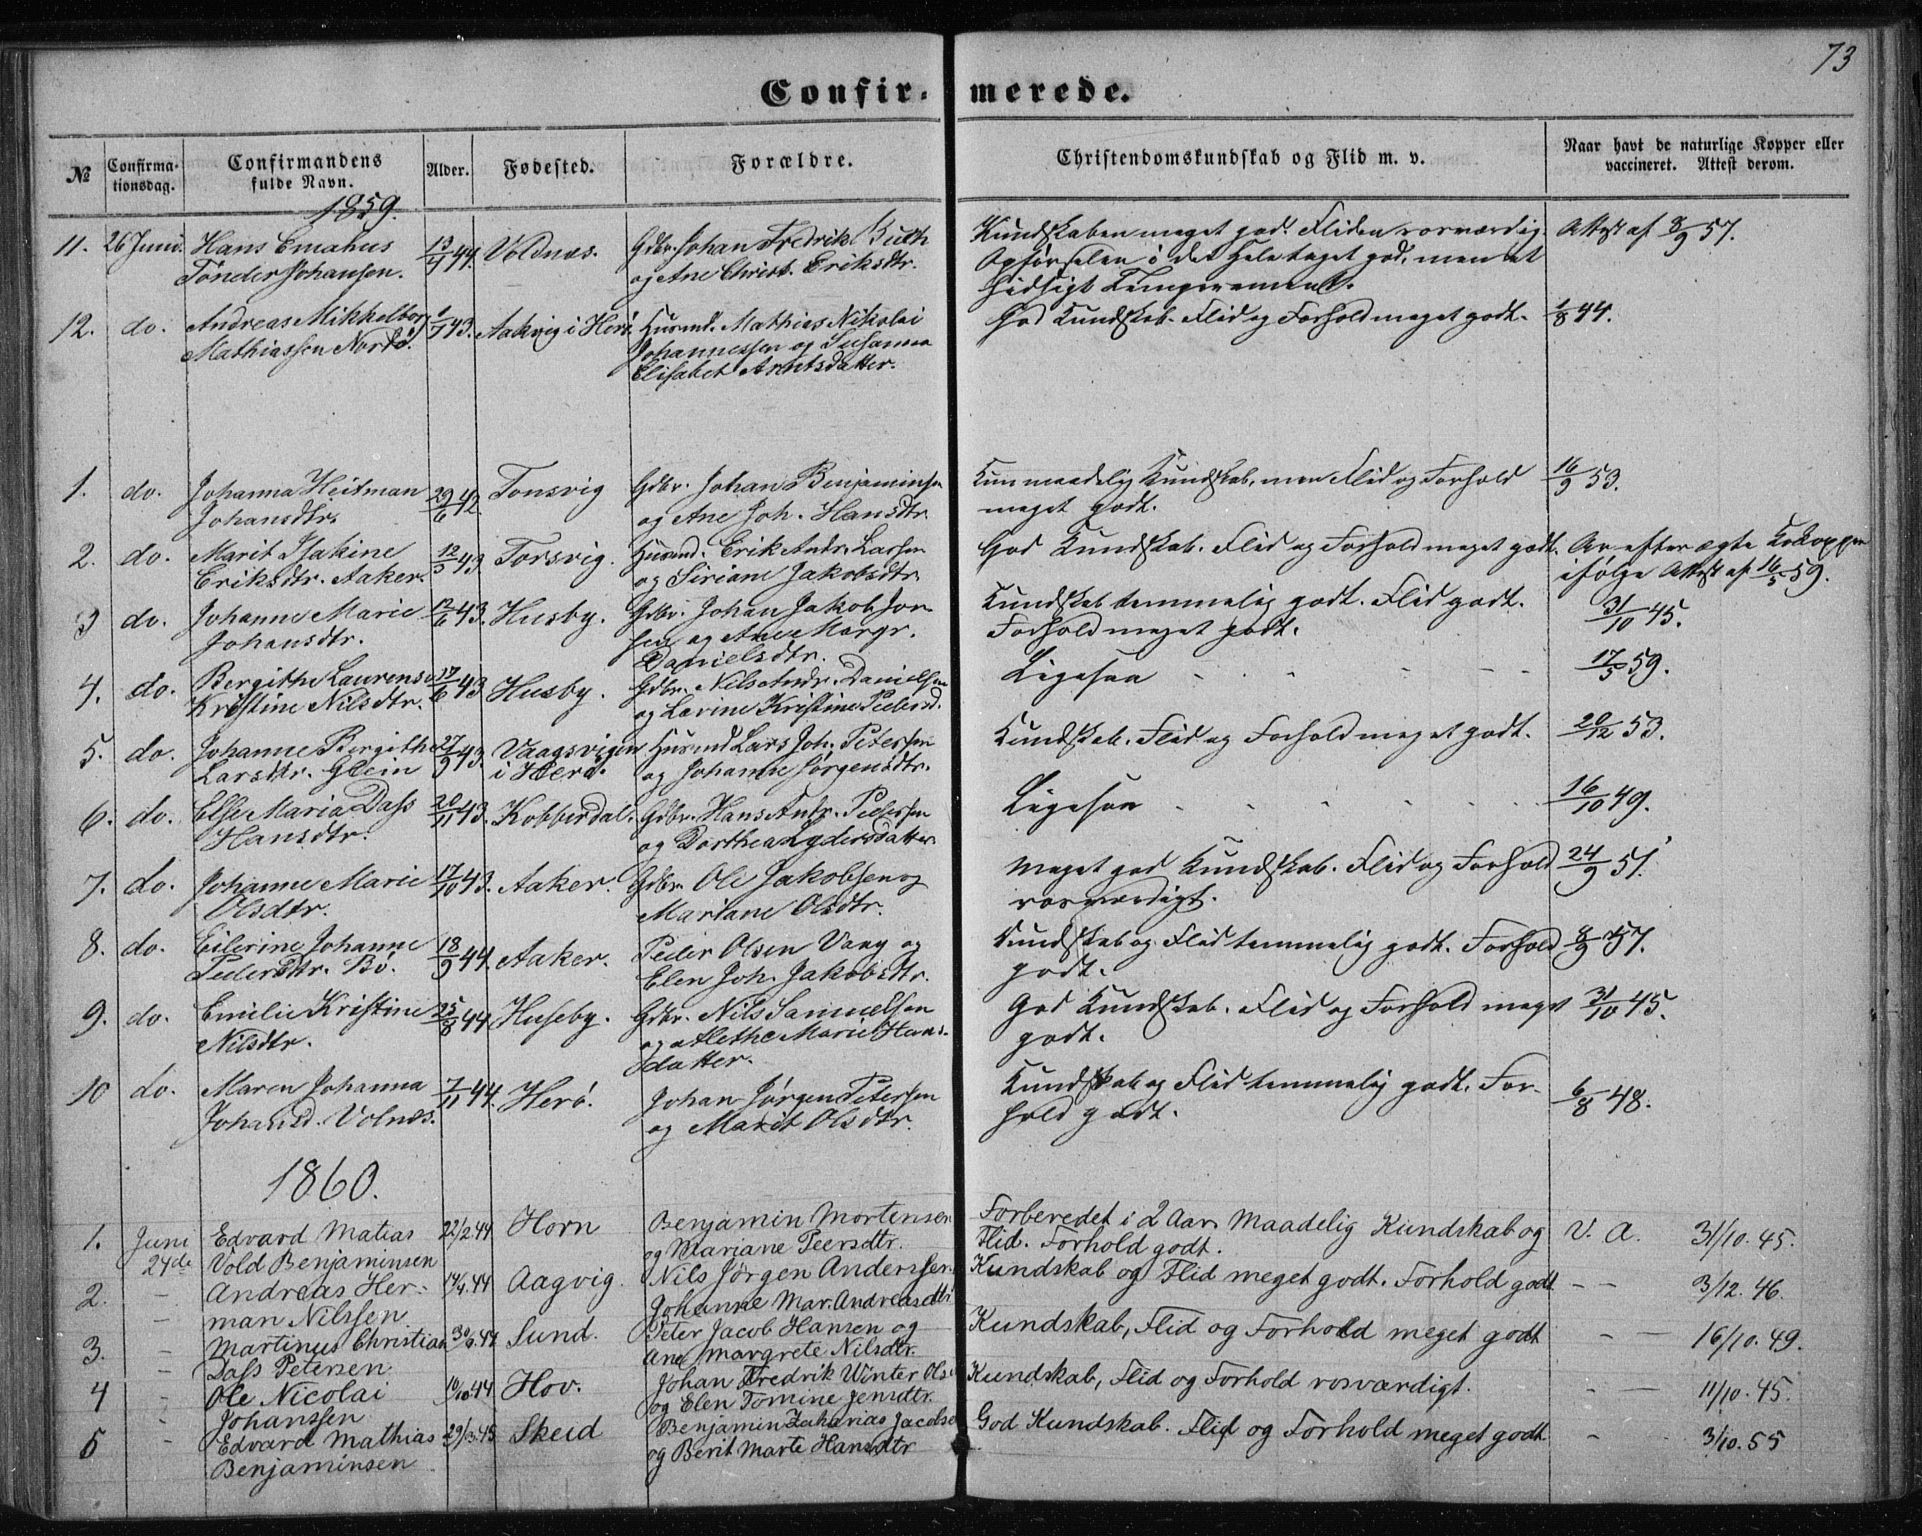 73
Confirmerede.
№ Confirmationsdag. Confirmandens fulde Navn. Alder. Fødested. Forældre. Christendomskundskab og Flid m. v. Naar havt de naturlige Kopper eller vaccineret. Attest derom.
1859.
11. 26 Juni. Hans Emahus 13/1 44. Voldnæs. Gdbr. Johan Fredrik Buth Kundskaben meget god. Fliden rosværdig. Attest af 8/9 57.
Tönder Johansen. og Ane Christ. Eriksdtr. Opförselen i det Hele taget god, men et
hidsigt Temperament.
12. do. Andreas Mikkelborg 1/7 43. Aakvig i Herö Husmd. Mathias Nikolai God Kundskab. Flid og Forhold meget godt. 1/8 44.
Mathiassen Nordö. Johannessen og Susanna
Elisabet Arntsdatter.
1. do. Johanna Heitman 29/6 42. Tonsvig Gdbr. Johan Benjaminsen Kun maadelig Kundskab, men Flid og Forhold 16/9 53.
Johansdtr. og Ane Joh. Hansdtr. meget godt.
2. do. Marit Isakine 12/3 43. Torsvig. Husmd. Erik Andr. Larsen God Kundskab. Flid og Forhold meget godt. Ar efter ægte Kokopper
Eriksdtr. Aaker. og Siriane Jakobsdtr. ifölge Attest af 16/5 59.
3 do. Johanne Marie 12/6 43. Husby. Gdbr. Johan Jakob Jor- Kundskab temmelig godt. Flid godt. 31/10 45.
Johansdtr. sen og Ane Margr. Forhold meget godt.
Danielsdtr.
4. do. Bergithe Laurense 17/6 43 Husby. Gdbr. Nils Andr. Danielsen Ligesaa - - - - 17/5 59.
Kristine Nilsdtr. og Lavine Kristine Pedersd.
5. do. Johanne Bergithe 27/9 43. Vaagsvigen Husmd Lars Joh. Petersen Kundskab. Flid og Forhold meget godt. 20/12 53.
Larsdtr. Glein i Herö. og Johanne Jörgensdtr.
6. do. Else Maria Dass 20/11 43. Kobberdal. Gdbr. Hans Andr. Pedersen Ligesaa - - - - 16/10 49.
Hansdtr. og Dorthea Lydersdatter
7. do. Johanne Marie 17/10 43. Aaker. Gdbr. Ole Jakobsen og Meget god Kundskab. Flid og Forhold 24/9 51.
Olsdtr. Mariane Olsdtr. rosværdigt.
8. do. Eilerine Johanne 18/9 44. Aaker. Peder Olsen Vaag og Kundskab og Flid temmelig godt. Forhold 8/9 57.
Pedersdtr. Bö. Elen Joh. Jakobsdtr. godt.
9. do. Emilie Kristine 25/3 44. Huseby. Gdbr. Nils Samuelsen God Kundskab. Flid og Forhold meget 31/10 45.
Nilsdtr. og Alethe Marie Hans- godt.
datter.
10 do. Maren Johanna 7/11 44. Herö. Johan Jörgen Petersen Kundskab og Flid temmelig godt. For- 6/8 48.
Johansd. Volnæs. og Marit Olsdtr. hold godt.
1860.
1. Juni Edvard Matias 22/2 44 Horn Benjamin Mortensen Forberedet i 2 Aar. Maadelig Kundskab og V. A. 31/10. 45.
24de Vold Benjaminsen og Mariane Peersdtr. Flid. Forhold godt.
2. - Andreas Her- 14/4. 44 Aagvig. Nils Jörgen Anderssen Kundskab og Flid meget godt. Forhold godt - - 3/12. 46.
- man Nilssen Johanne Mar. Andreasdtr
3. - Martinus Christian 30/6. 44 Sund. Peter Jacob Hansen og Kundskab, Flid og Forhold meget godt - - 16/10. 49.
- Dass Petersen Ane Margrete Nilsdtr.
4 - Ole Nicolai 16/10 44 Hov. Johan Fredrik Winter Ols Kundskab, Flid og Forhold rosværdigt. - - 11/10. 45.
- Johanssen og Elen Tomine Jensdtr.
5 - Edvard Mathias 29/3. 45 Skeid Benjamin Zacharias Jacobse God Kundskab. Flid og Forhold meget godt. - 3/10. 55
Benjaminsen og Berit Marte Hansdtr